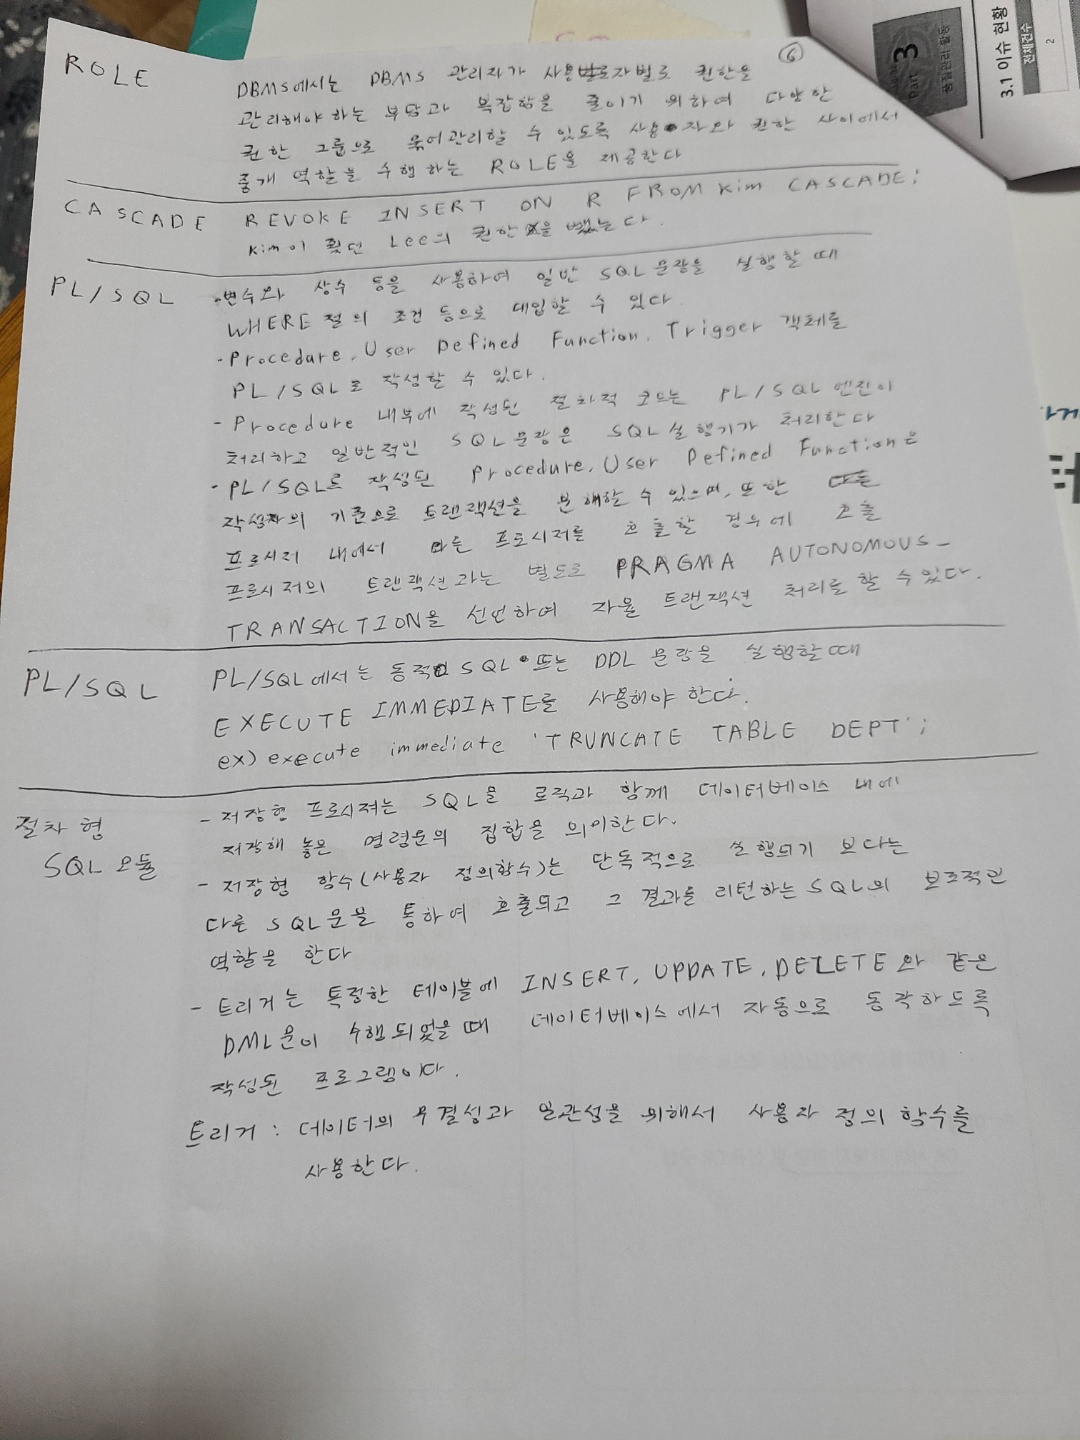 ⑥
ROLE
DBMS에서는 DBMS 관리자가 사용자별로 권한을
관리해야 하는 부담과 복잡함을 줄이기 위하여 다양한
권한 그룹으로 묶어 관리할 수 있도록 사용자와 권한 사이에서
중개 역할을 수행하는 ROLE을 제공한다
CASCADE
REVOKE INSERT ON R FROM Kim CASCADE;
Kim이 줬던 Lee의 권한을 뺏는다.
PL/SQL
·변수와 상수 등을 사용하여 일반 SQL 문장을 실행할 때
WHERE 절의 조건 등으로 대입할 수 있다.
·Procedure, User Defined Function, Trigger 객체를
PL/SQL로 작성할 수 있다.
·Procedure 내부에 작성된 절차적 코드는 PL/SQL 엔진이
처리하고 일반적인 SQL 문장은 SQL 실행기가 처리한다
·PL/SQL로 작성된 Procedure, User Defined Function은
작성자의 기준으로 트랜잭션을 분해할 수 있으며, 또한
프로시저 내에서 다른 프로시저를 호출할 경우에 호출
프로시저의 트랜잭션과는 별도로 PRAGMA AUTONOMOUS_
TRANSACTION을 선언하여 자율 트랜잭션 처리를 할 수 있다.
PL/SQL
PL/SQL에서는 동적 SQL 또는 DDL 문장을 실행할 때
EXECUTE IMMEDIATE를 사용해야 한다.
ex) execute immediate 'TRUNCATE TABLE DEPT';
절차형
SQL 모듈
- 저장형 프로시져는 SQL을 로직과 함께 데이터베이스 내에
저장해 놓은 명령문의 집합을 의미한다.
- 저장형 함수(사용자 정의함수)는 단독적으로 실행되기 보다는
다른 SQL문을 통하여 호출되고 그 결과를 리턴하는 SQL의 보조적인
역할을 한다
- 트리거는 특정한 테이블에 INSERT, UPDATE, DELETE와 같은
DML문이 수행되었을 때 데이터베이스에서 자동으로 동작하도록
작성된 프로그램이다.
트리거 : 데이터의 무결성과 일관성을 위해서 사용자 정의 함수를
사용한다.
Part 3
품질관리 활동
3.1 이슈 현황
전체건수
2